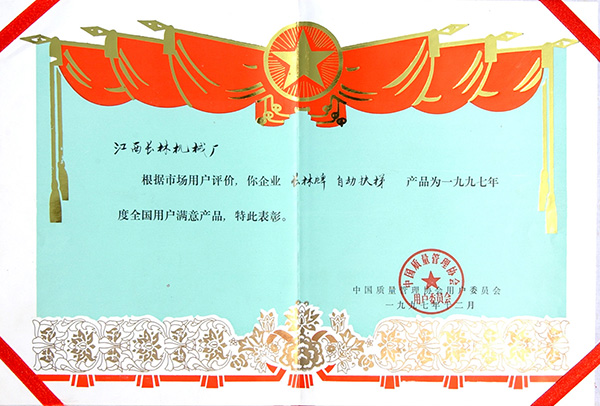 江西长林机械厂
根据市场用户评价，你企业 长林牌 自动扶梯 产品为一九九七年
度全国用户满意产品，特此表彰。
中国质量管理协会
用户委员会
中国质量管理协会用户委员会
一九九七年十二月